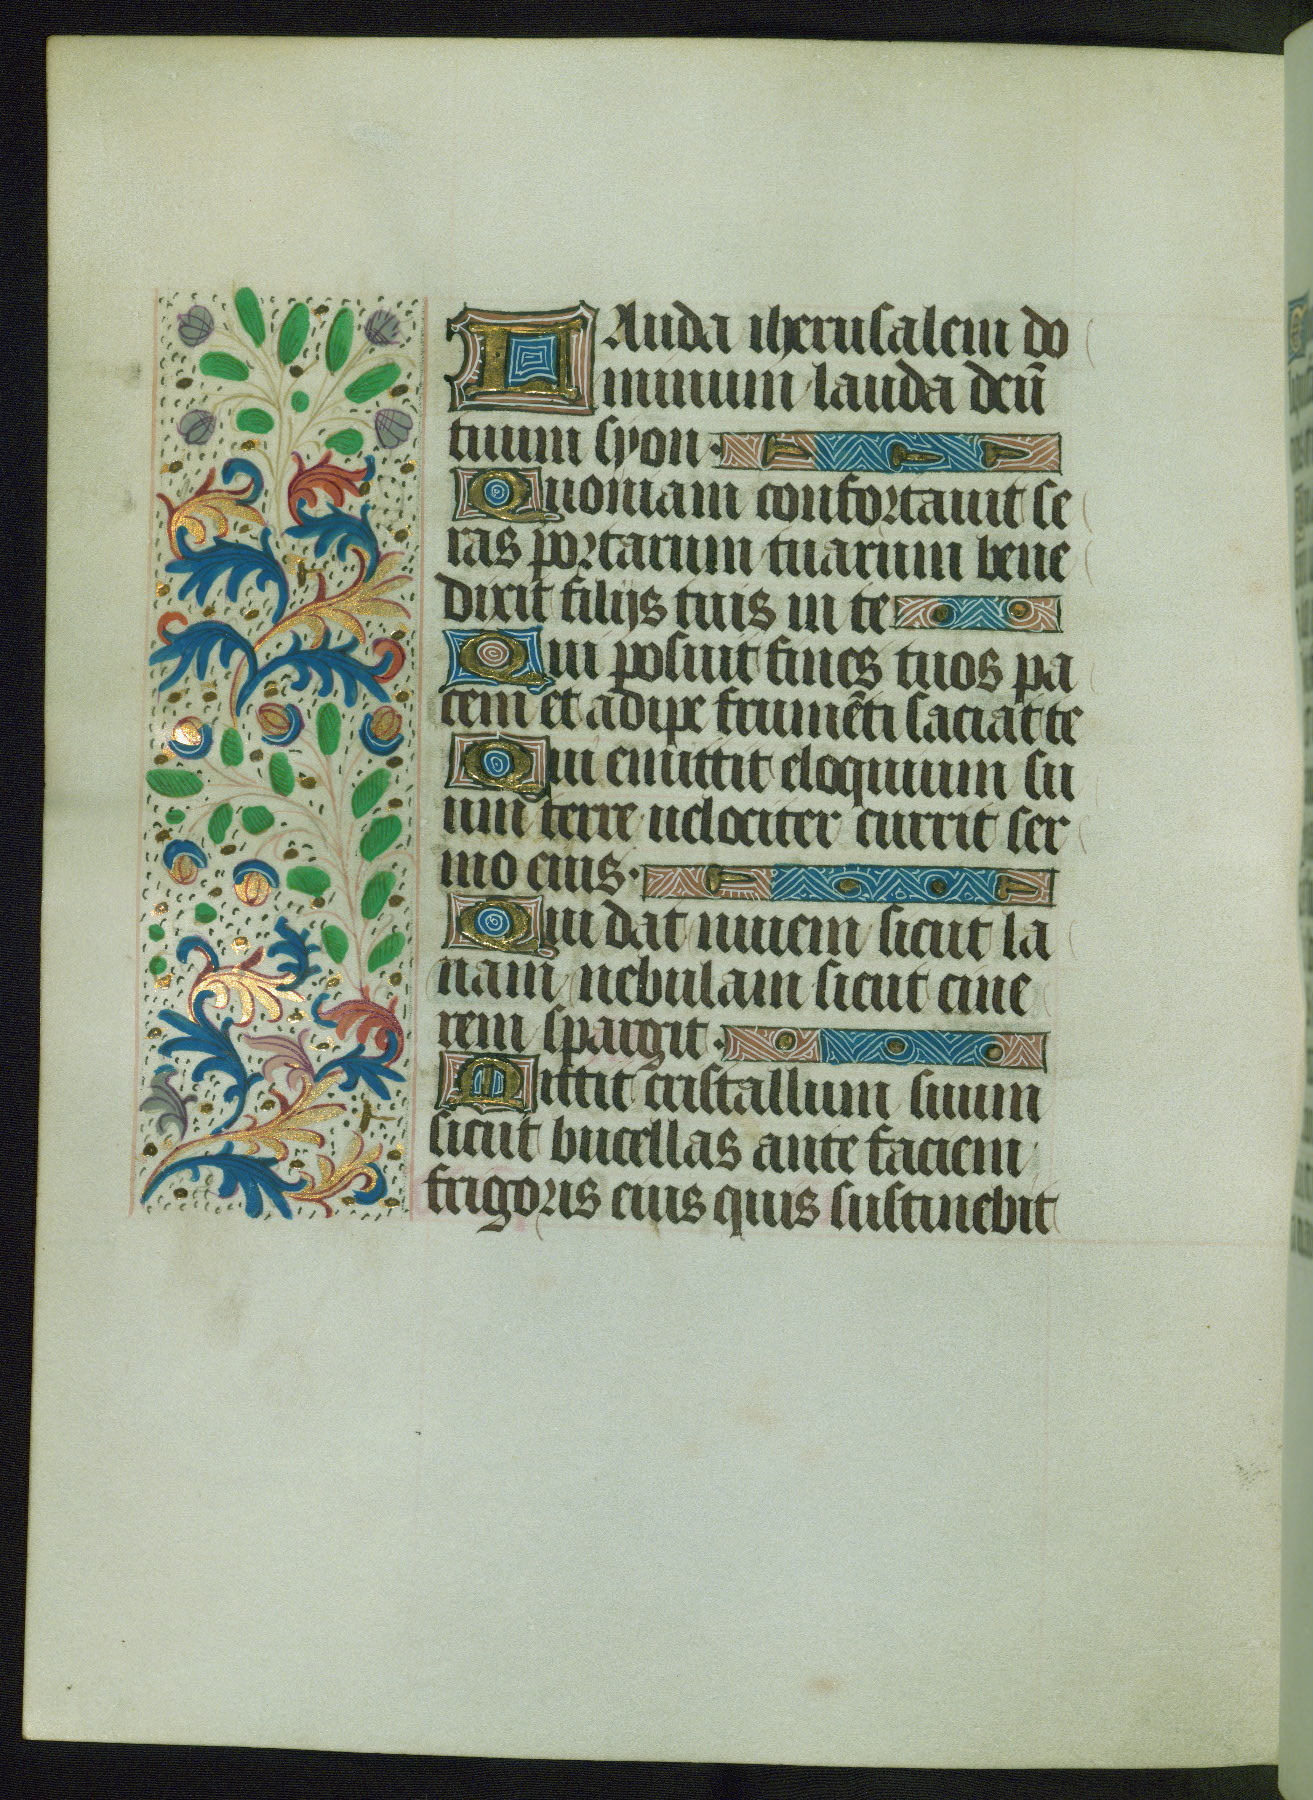 LAuda iherusalem do
minum lauda deū
tuum syon.
Quoniam confortauit se
ras portarum tuarum bene
dixit filijs tuis in te
Qui posuit fines tuos pa
cem et adipe frumēti saciat te
Qui emittit eloquium su
um terre uelociter currit ser
mo eius.
Qui dat niuem sicut la
nam nebulam sicut cine
rem spargit.
Mittit cristallum suum
sicut bucellas ante faciem
frigoris eius quis sustinebit